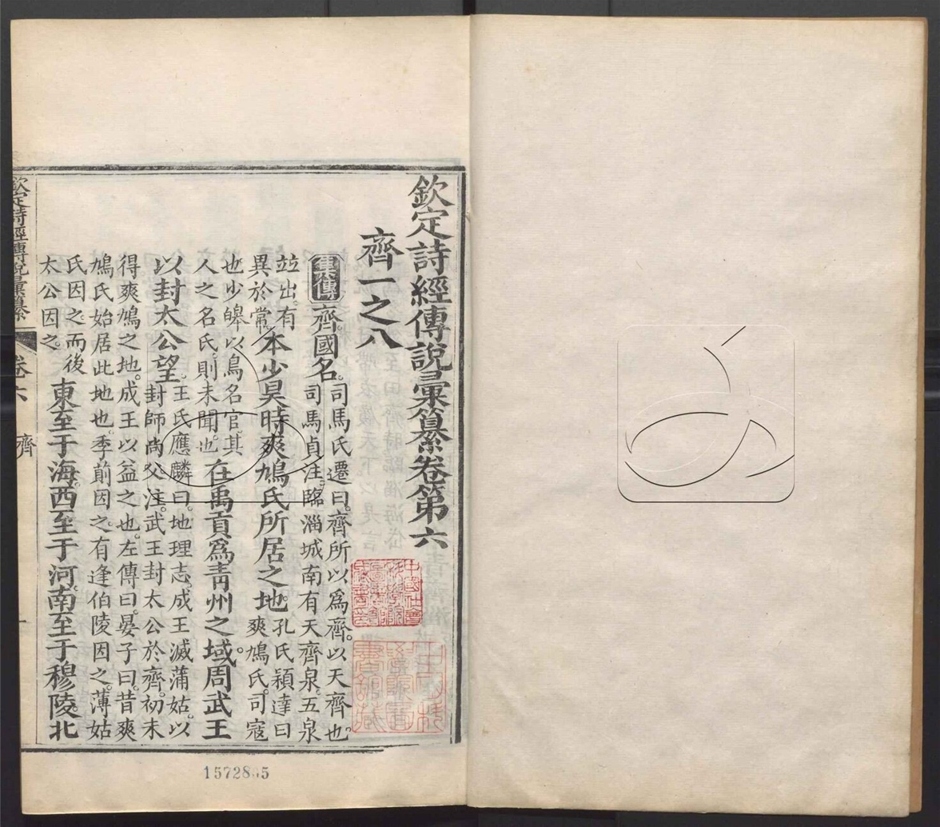 欽定詩經傳說彙纂卷第六
齊一之八
集傳齊國名司馬氏遷曰齊所以為齊以天齊也
司馬貞注臨淄城南有天齊泉五泉
竝出有
異於常本少昊時爽鳩氏所居之地孔氏穎達曰
爽鳩氏司寇
也少皞以鳥名官其
人之名氏則未聞也在禹貢為青州之域周武王
以封太公望王氏應麟曰地理志成王滅蒲姑以
封師尚父注武王封太公於齊初未
得爽鳩之地成王以益之也左傳曰晏子曰昔爽
鳩氏始居此地也季萴因之有逢伯陵因之薄姑
氏因之而後
太公因之東至于海西至于河南至于穆陵北
欽定詩經傳說彙纂
卷六
齊
一
1572835